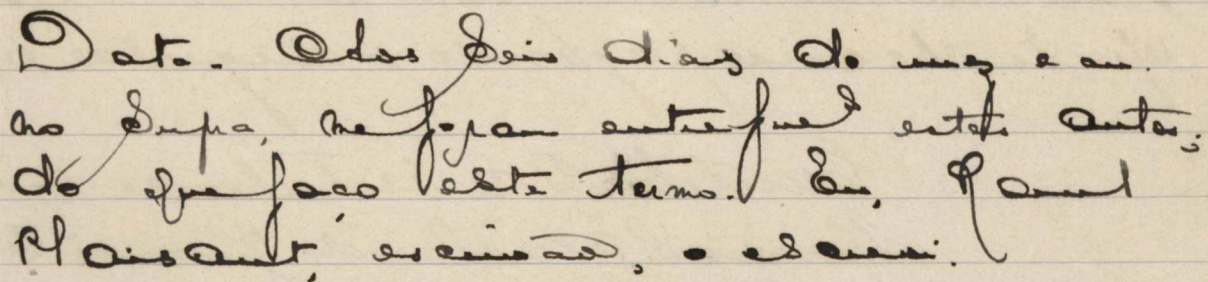 Data. Aos seis dias do mez e an-
no supra, me foram entregues estes autos;
do que faço este termo. Eu, Raul
Plaisant, escrivão, o escrevi.